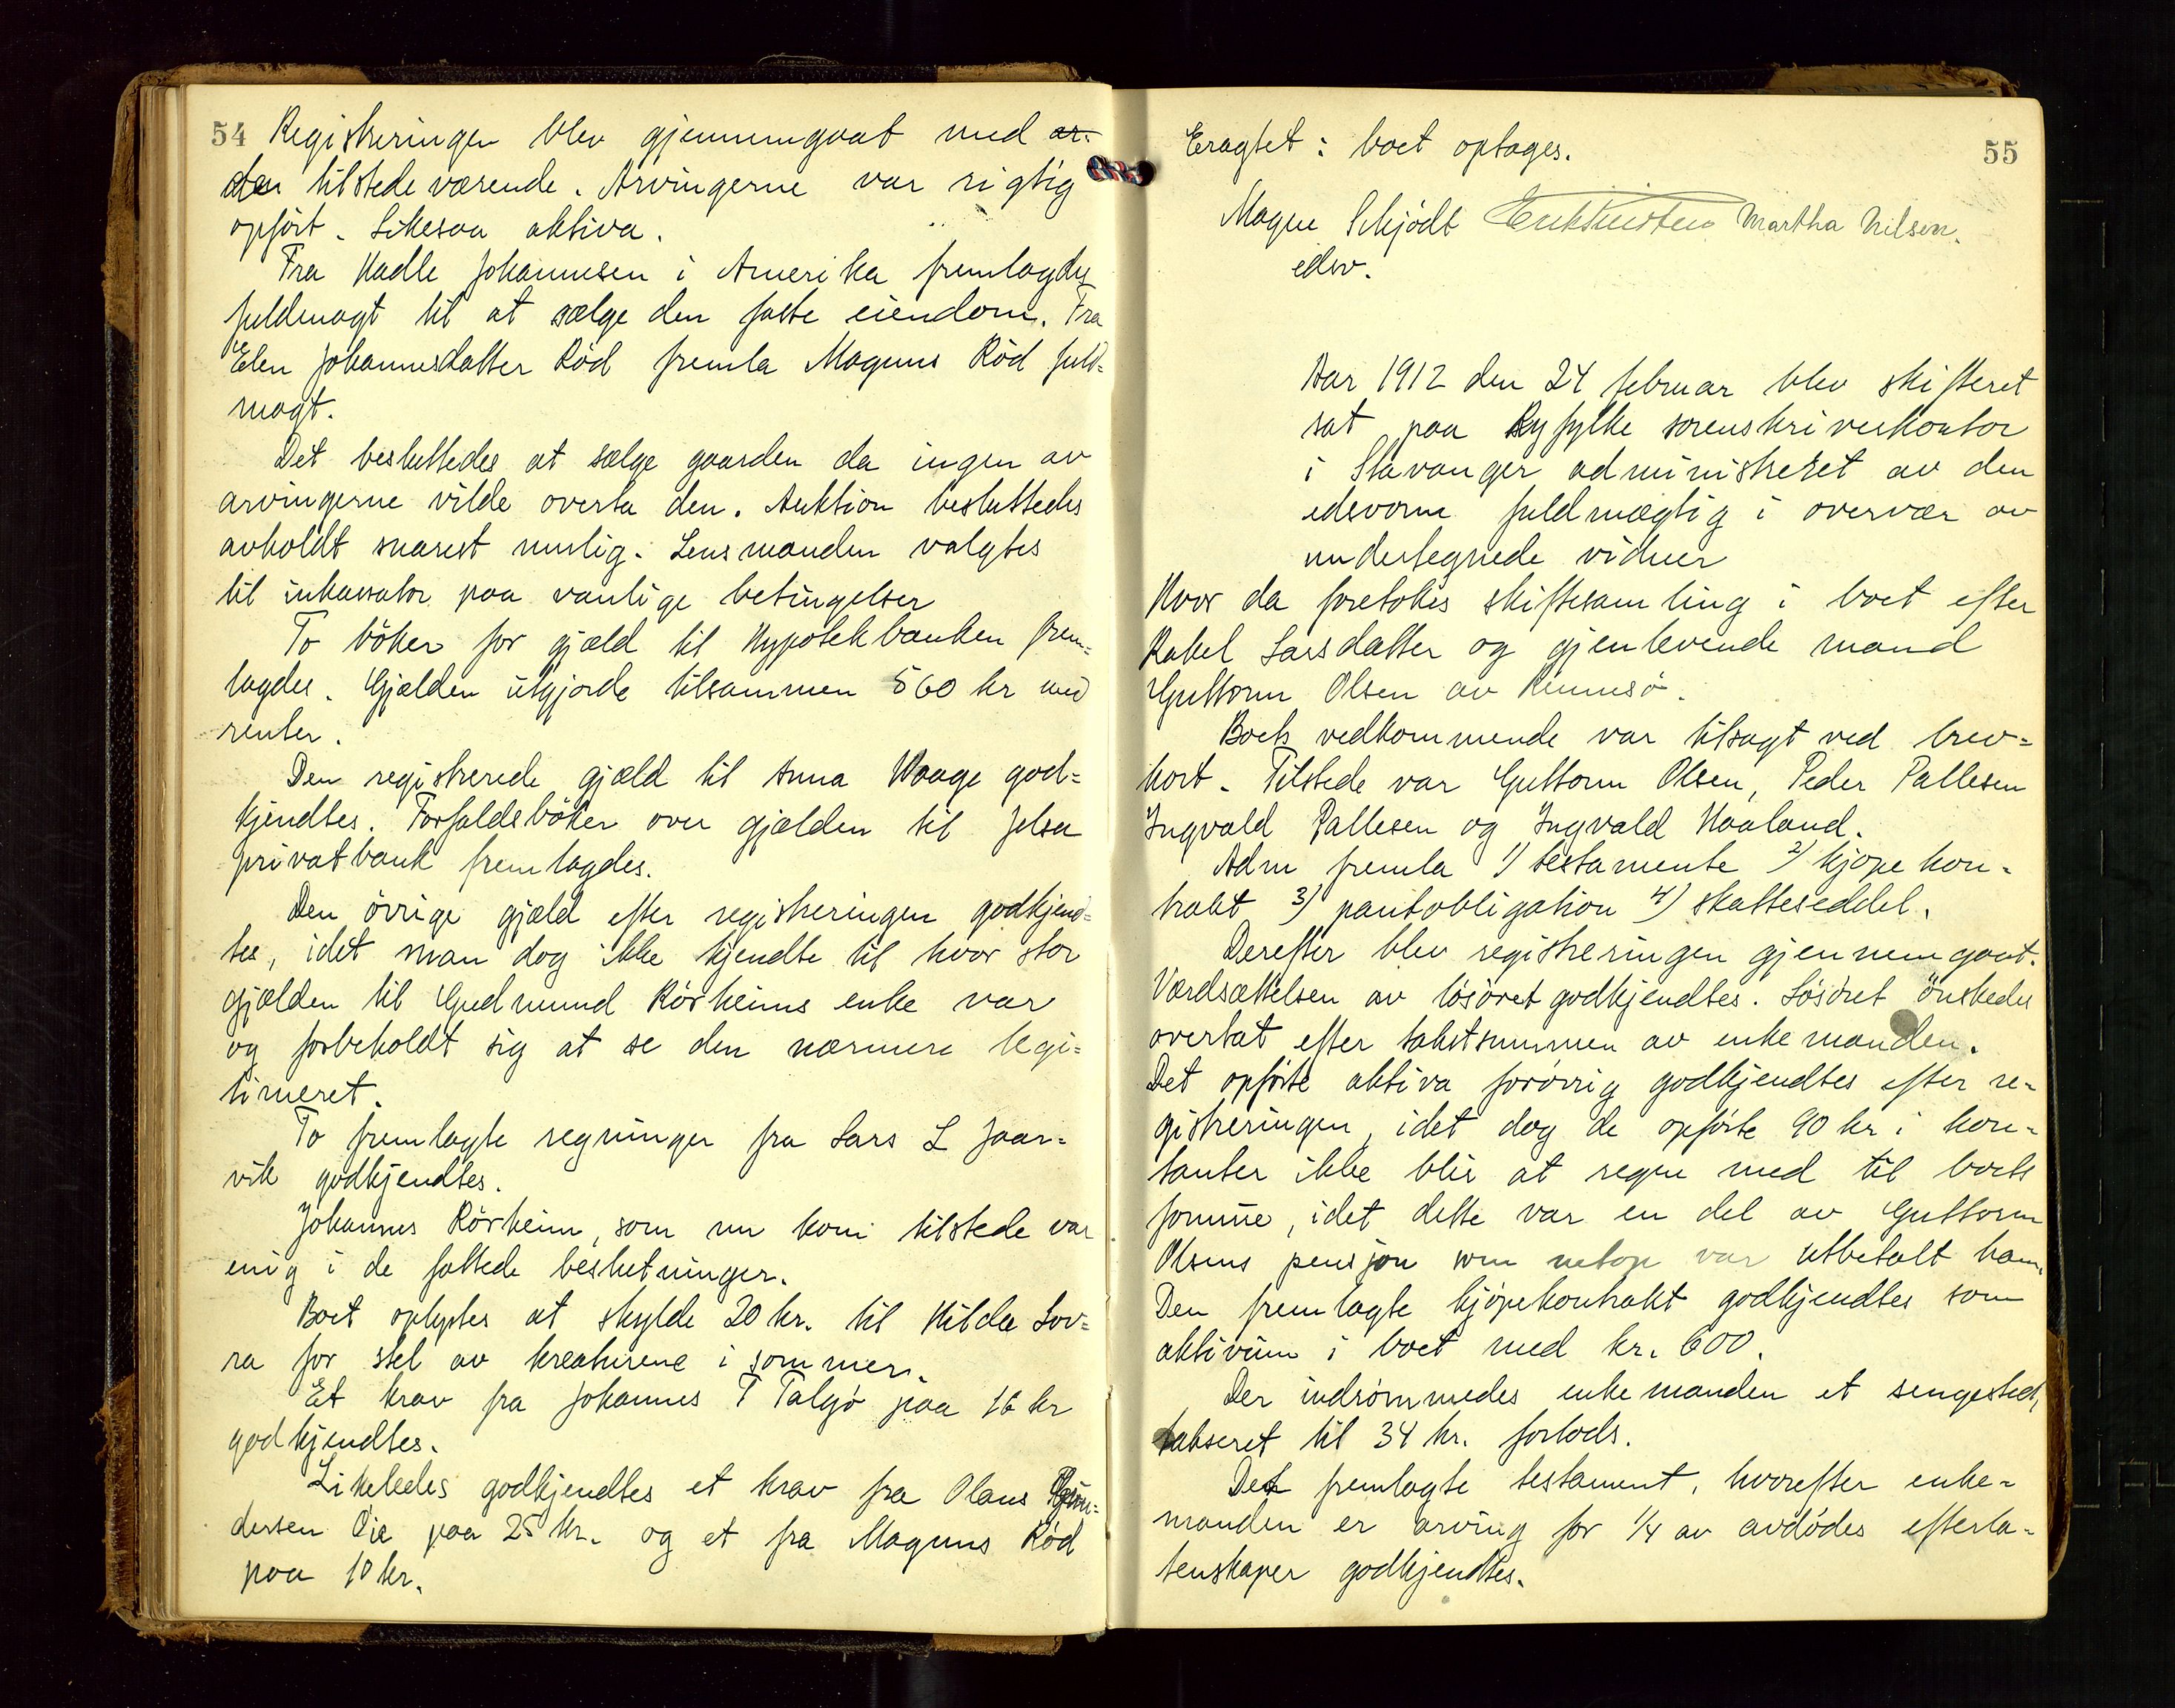 54 Registreringen blev gjennemgaat med ar-
den tilstedeværende. Arvingerne var rigtig
opført. Likesaa aktiva.
Fra Hadle Johannesen i Amerika fremlagdes
fuldmagt til at sælge den faste eiendom. Fra
Elen Johannesdatter Rød fremla Magnus Rød fuld=
magt.
Det besluttedes at sælge gaarden da ingen av
arvingerne vilde overta den. Auktion besluttedes
avholdt snarest mulig. Lensmanden valgtes
til inkassator paa vanlige betingelser
To bøker for gjæld til Hypotekbanken frem=
lagdes. Gjælden utgjorde tilsammen 560 kr med
renter.
Den registrerede gjæld til Anna Waage god=
kjendtes. Forfaldsbøker over gjælden til Jelsa
privatbank fremlagdes.
Den øvrige gjæld efter registreringen godkjend=
tes, idet man dog ikke kjendte til hvor stor
gjælden til Gudmund Rørheims enke var
og forbeholdt sig at se den nærmere legi=
timeret.
To fremlagte regninger fra Lars L Jaar=
vik godkjendtes.
Johannes Rørheim, som nu kom tilstede var
enig i de fattede beslutninger.
Boet oplystes at skylde 20 kr. til Hilda Lov=
ra for stel av kreaturene i sommer.
Et krav fra Johannes T Talgø paa 16 kr
godkjendtes.
Likeledes godkjendtes et krav fra Olaus
dersen Øie paa 25 kr. og et fra Magnus Rød
paa 10 kr.
55
Eragtet: boet optages.
Magne Schjødt Martha Nilsen.
edsv.
Aar 1912 den 24 februar blev skifteret
sat paa Ryfylke sorenskriverkontor
i Stavanger administreret av den
edsvorne fuldmægtig i overvær av
undertegnede vidner
Hvor da foretokes skiftesamling i boet efter
Rakel Larsdatter og gjenlevende mand
Guttorm Olsen av Rennesø.
Boets vedkommende var tilsagt ved brev=
kort. Tilstede var Guttorm Olsen, Peder Pallesen
Ingvald Pallesen og Ingvald Haaland.
Adm fremla 1) testamente 2) kjøpekon-
trakt 3) pantobligation 4) skatteseddel.
Derefter blev registreringen gjennemgaat.
Værdsættelsen av løsøret godkjendtes. Løsøret ønskedes
overtat efter takstsummen av enkemanden.
Det opførte aktiva forøvrig godkjendtes efter re-
gistreringen, idet dog de opførte 90 kr i kon-
tanter ikke blir at regne med til boets
formue, idet dette var en del av Guttorm
Olsens pensjon som netop var utbetalt ham.
Den fremlagte kjøpekontrakt godkjendtes som
aktivum i boet med kr. 600.
Der indrømmedes enkemanden et sengested,
takseret til 34 kr. forlods.
Det fremlagte testament, hvorefter enke-
manden er arving for 1/4 av avdødes efterla-
tenskaper godkjendtes.